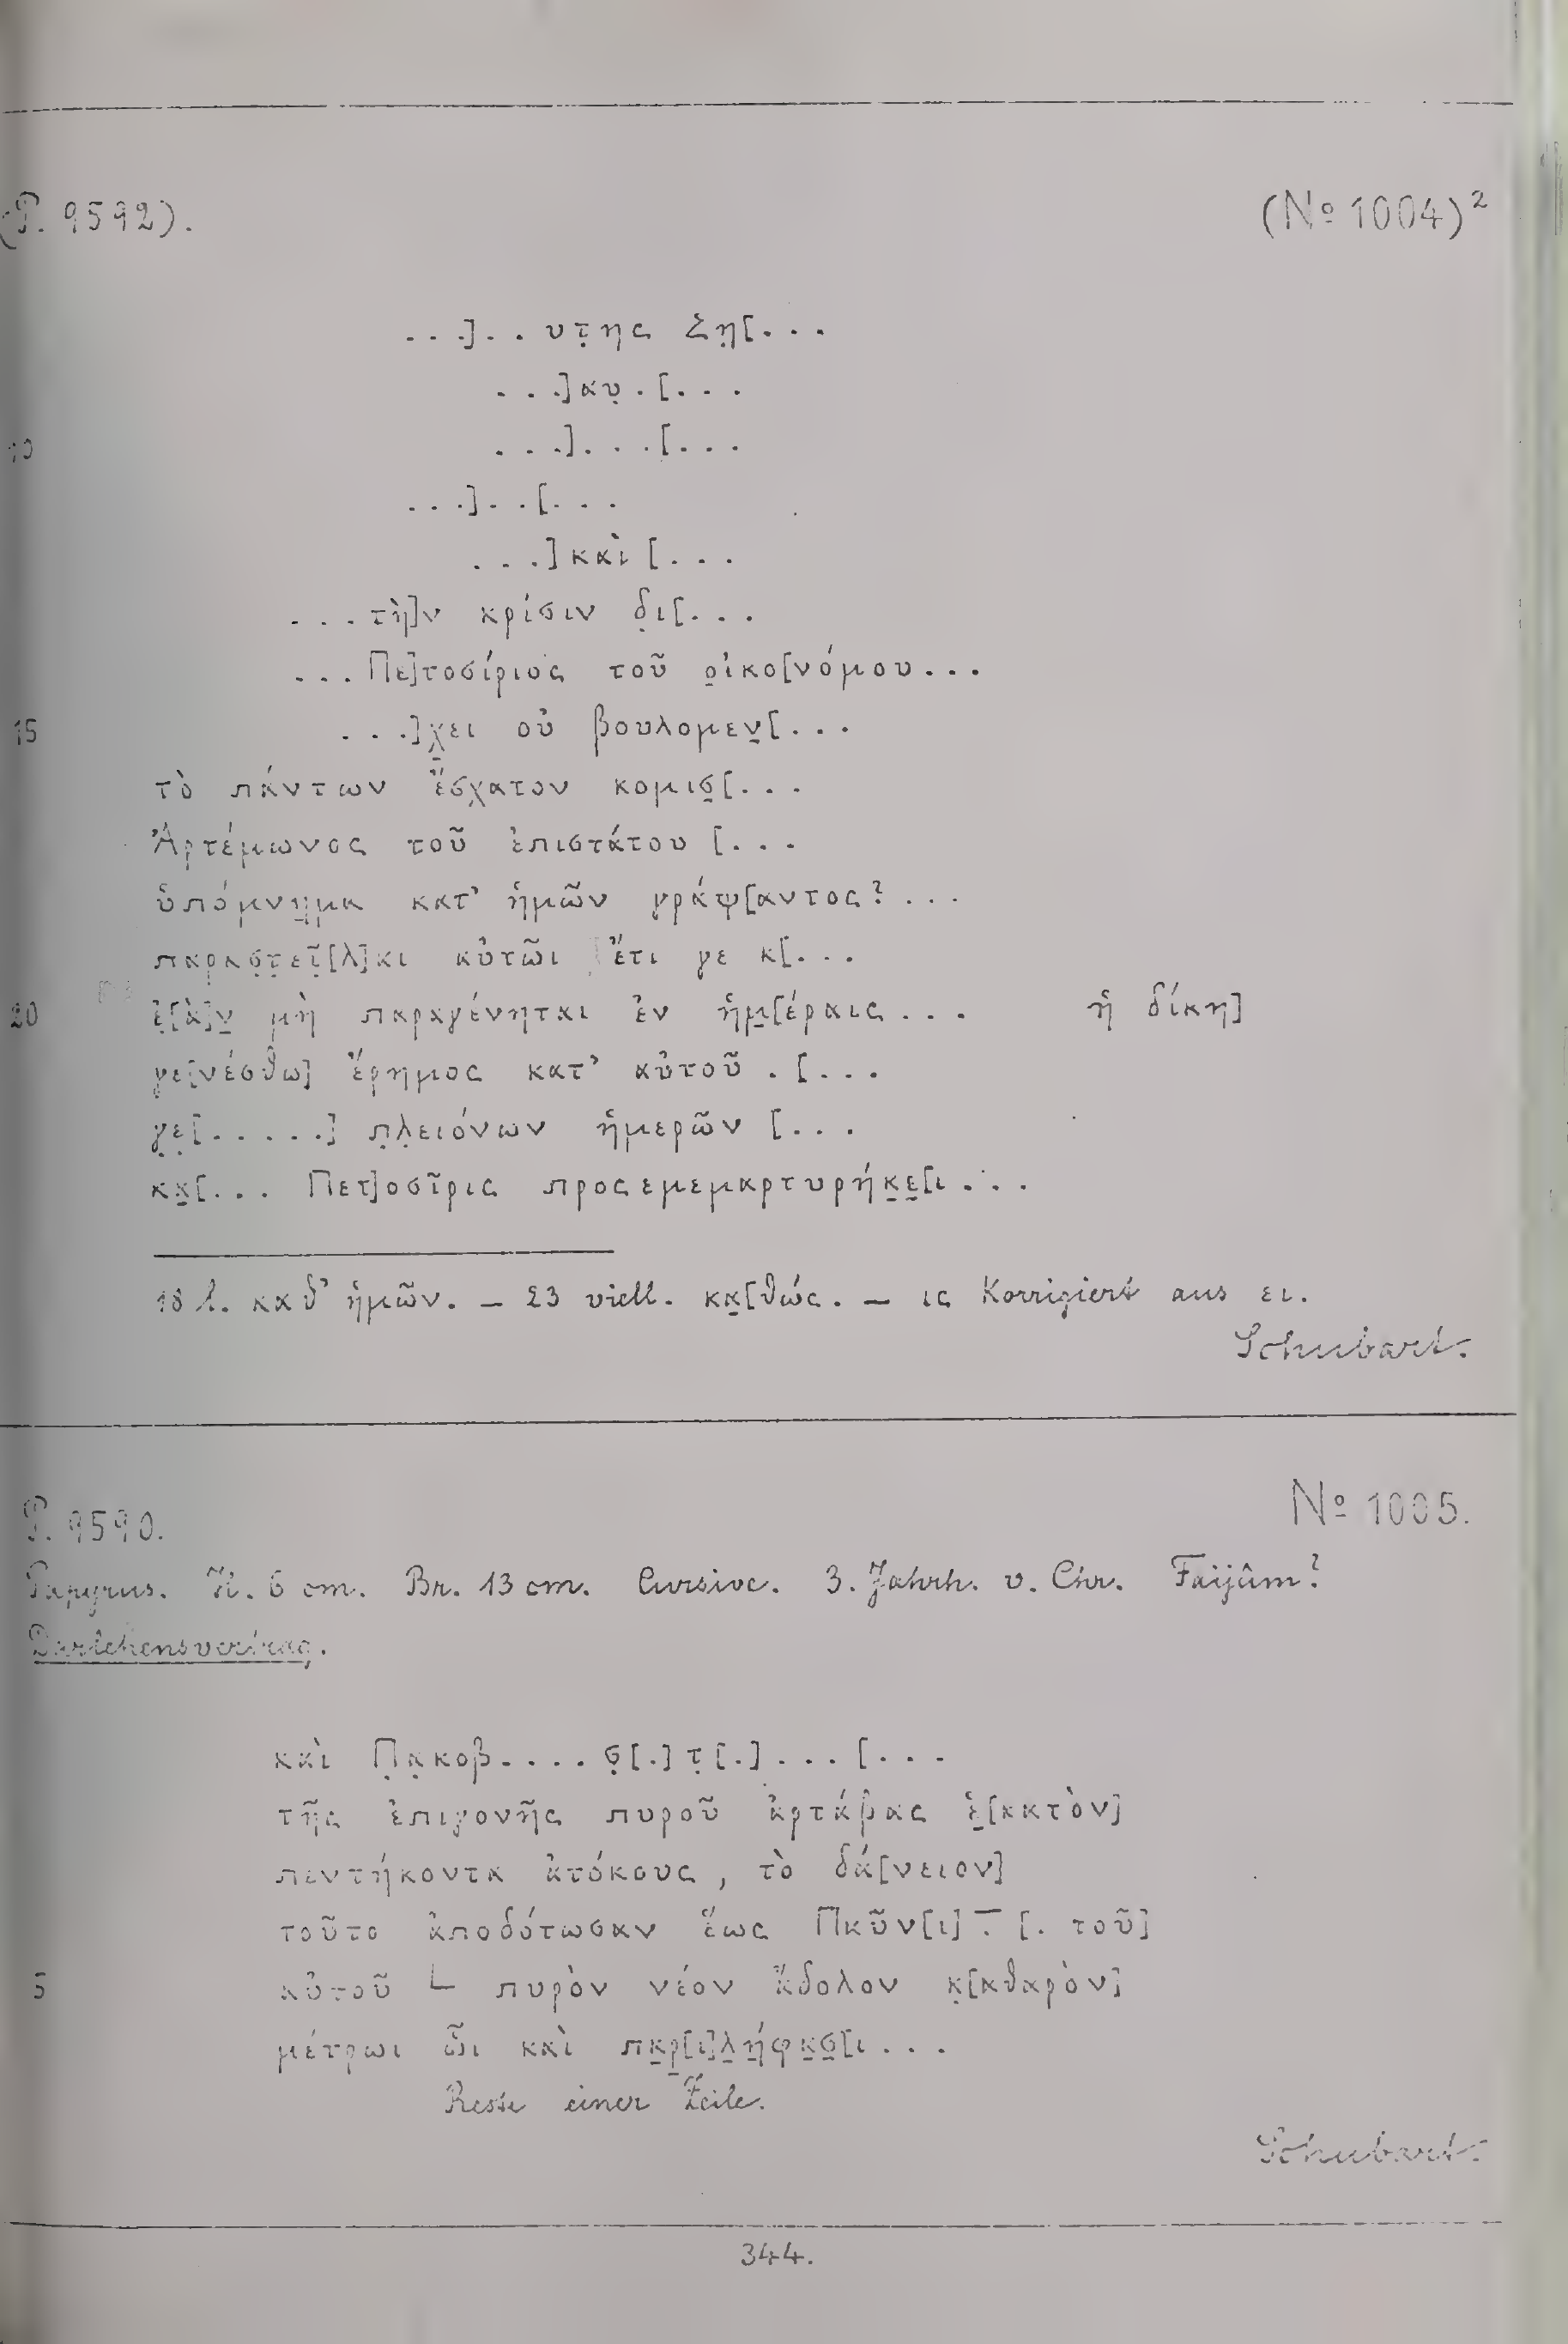 (P. 9592). (No 1004)²
...]..υτ̣ης Ζη̣[...
...]κυ̣.[...
10 ...]...[...
...]..[...
...]καὶ [...
...τὴ]ν κρίσιν δ̣ι[...
...Πε]τοσίριος τοῦ ο̣ἰκο[νόμου...
15 ...]χ̣ει οὐ βουλομεν̣[...
τὸ πάντων ἔσχατον κομισ̣[...
Ἀρτέμωνος τοῦ ἐπιστάτου [...
ὑπόμνη̣μα κατ’ ἡμῶν γράψ[αντος?...
παρασ̣τ̣εῖ̣[λ]αι αὐτῶι ἔτι γε κ[...
20 ἐ̣[ὰ]ν̣ μὴ παραγένηται ἐν ἡμ̣[έραις... ἡ δίκη]
γε[νέσθω] ἔρημος κατ’ αὐτοῦ .[...
γ̣ε̣[.....] π̣λ̣ειόνων ἡμερῶν [...
κα̣[... Πετ]οσῖρις προσεμεμαρτυρήκ̣ε̣[ι...
18 l. καθ’ ἡμῶν. – 23 viell. κα̣[θώς. – ις Korrigiert aus ει.
Schubart.
P. 9590. No 1005.
Papyrus. H. 6 cm. Br. 13 cm. Cursive. 3. Jahrh. v. Chr. Faijûm?
Darlehensvertrag.
καὶ Π̣α̣κοβ....σ̣[.]τ̣[.]...[...
τῆς ἐπιγονῆς πυροῦ ἀρτάβας ἑ̣[κατὸν]
πεντήκοντα ἀτόκους, τὸ δά[νειον]
τοῦτο ἀποδότωσαν ἕως Παῦν[ι] .̅ [. τοῦ]
5 αὐτοῦ L πυρὸν νέον ἄδολον κ̣[αθαρὸν]
μέτρωι ὧι καὶ πα̣ρ̣[ι]λ̣ή̣φα̣σ̣[ι...
Reste einer Zeile.
Schubart.
344.